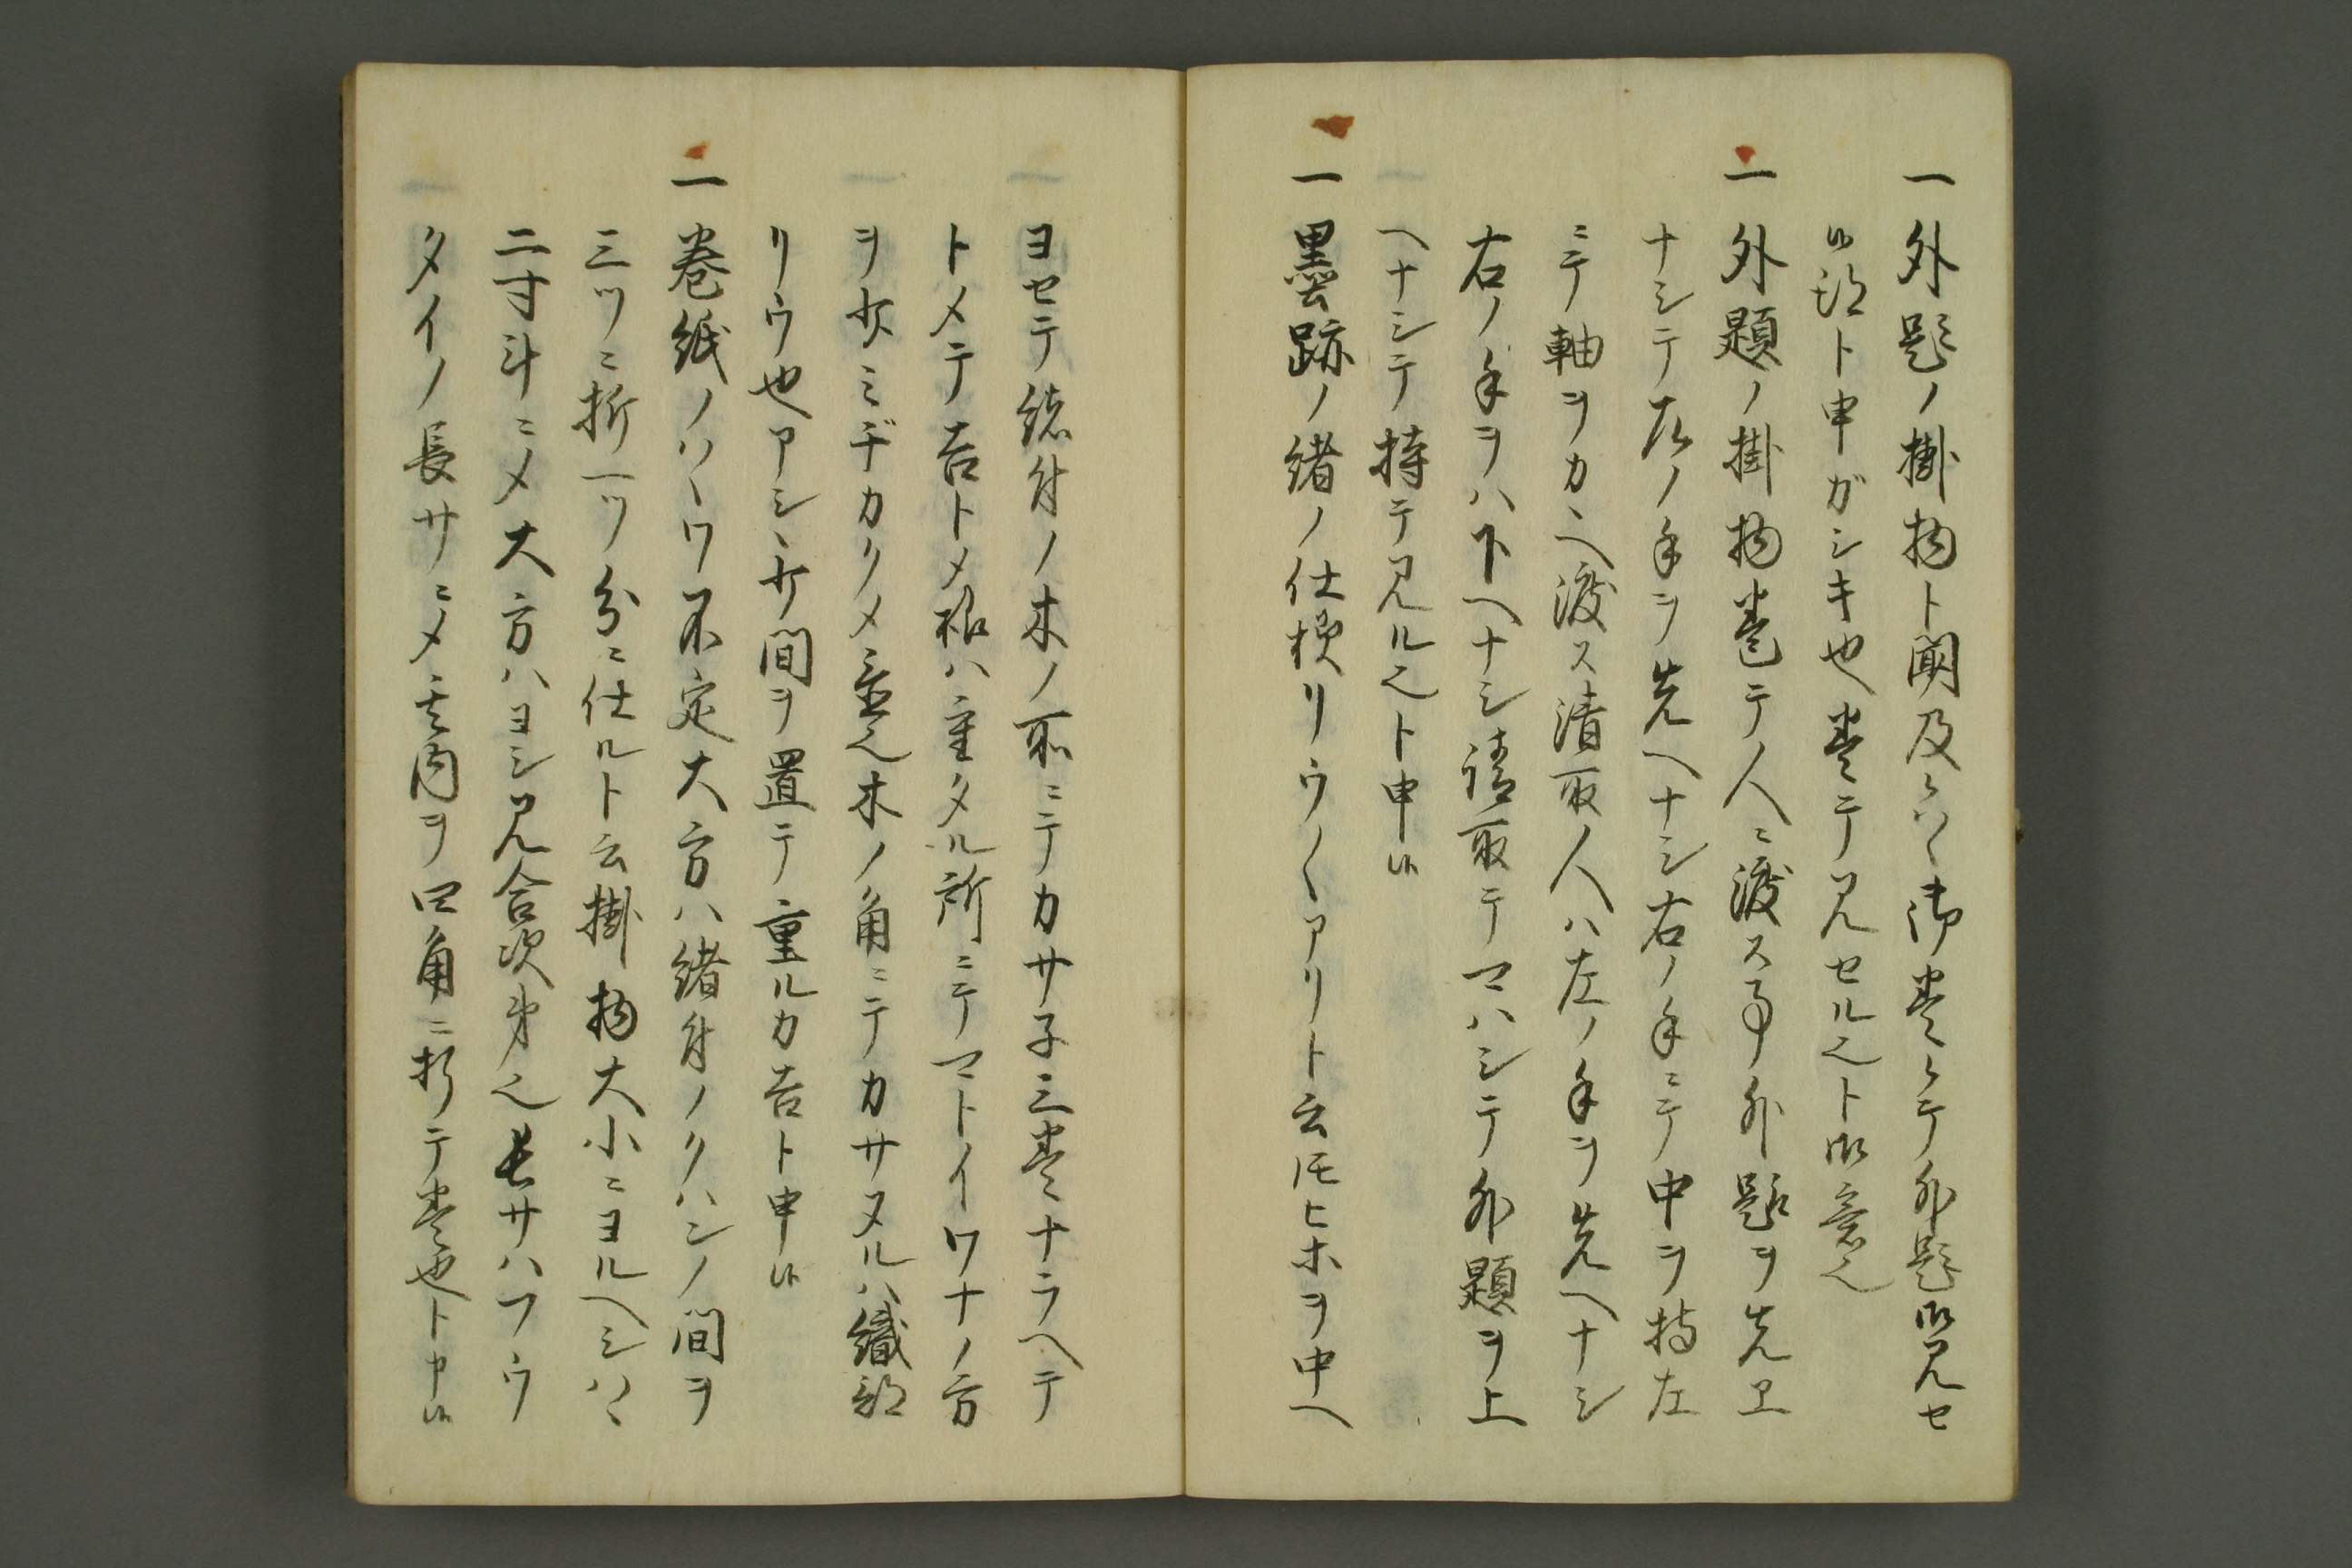 一 外題ノ掛物ト聞及候ハヽ御巻候テ外題御見セ
候得ト申ガシキ也巻テ見セル也ト御意也
一 外題ノ掛物巻テ人ニ渡ス事外題ヲ先エ
ナシテ左ノ手ヲ先ヘナシ右ノ手ニテ中ヲ持左
ニテ軸ヲカヘ渡ス請取人ハ左ノ手ヲ先ヘナシ
右ノ手ヲハ下ヘナシ請取テマハシテ外題ヲ上
ヘナシテ持テ見ル也ト申候
一 墨跡ノ緒ノ仕様リウ〱アリト云圧ヒホヲ中ヘ
ヨセテ緒付ノ木ノ所ニテカサ子三巻ナラヘテ
トメテ吉トメ様ハ重タル所ニテマトイワナノ方
ヲ少ミヂカクメ並也木ノ角ニテカサヌルハ織部
リウ也アシヽ少間ヲ置テ重ルカ吉ト申候
一 巻紙ノハヽワ不定大方ハ緒付ノクハシノ間ヲ
三ツニ折一ツ分ニ仕ルト云掛物大小ニヨルヘシハヽ
二寸斗ニメ大方ハヨシ見合次第也長サハフウ
タイノ長サニメ其内ヲ四角ニ折テ巻也ト申候